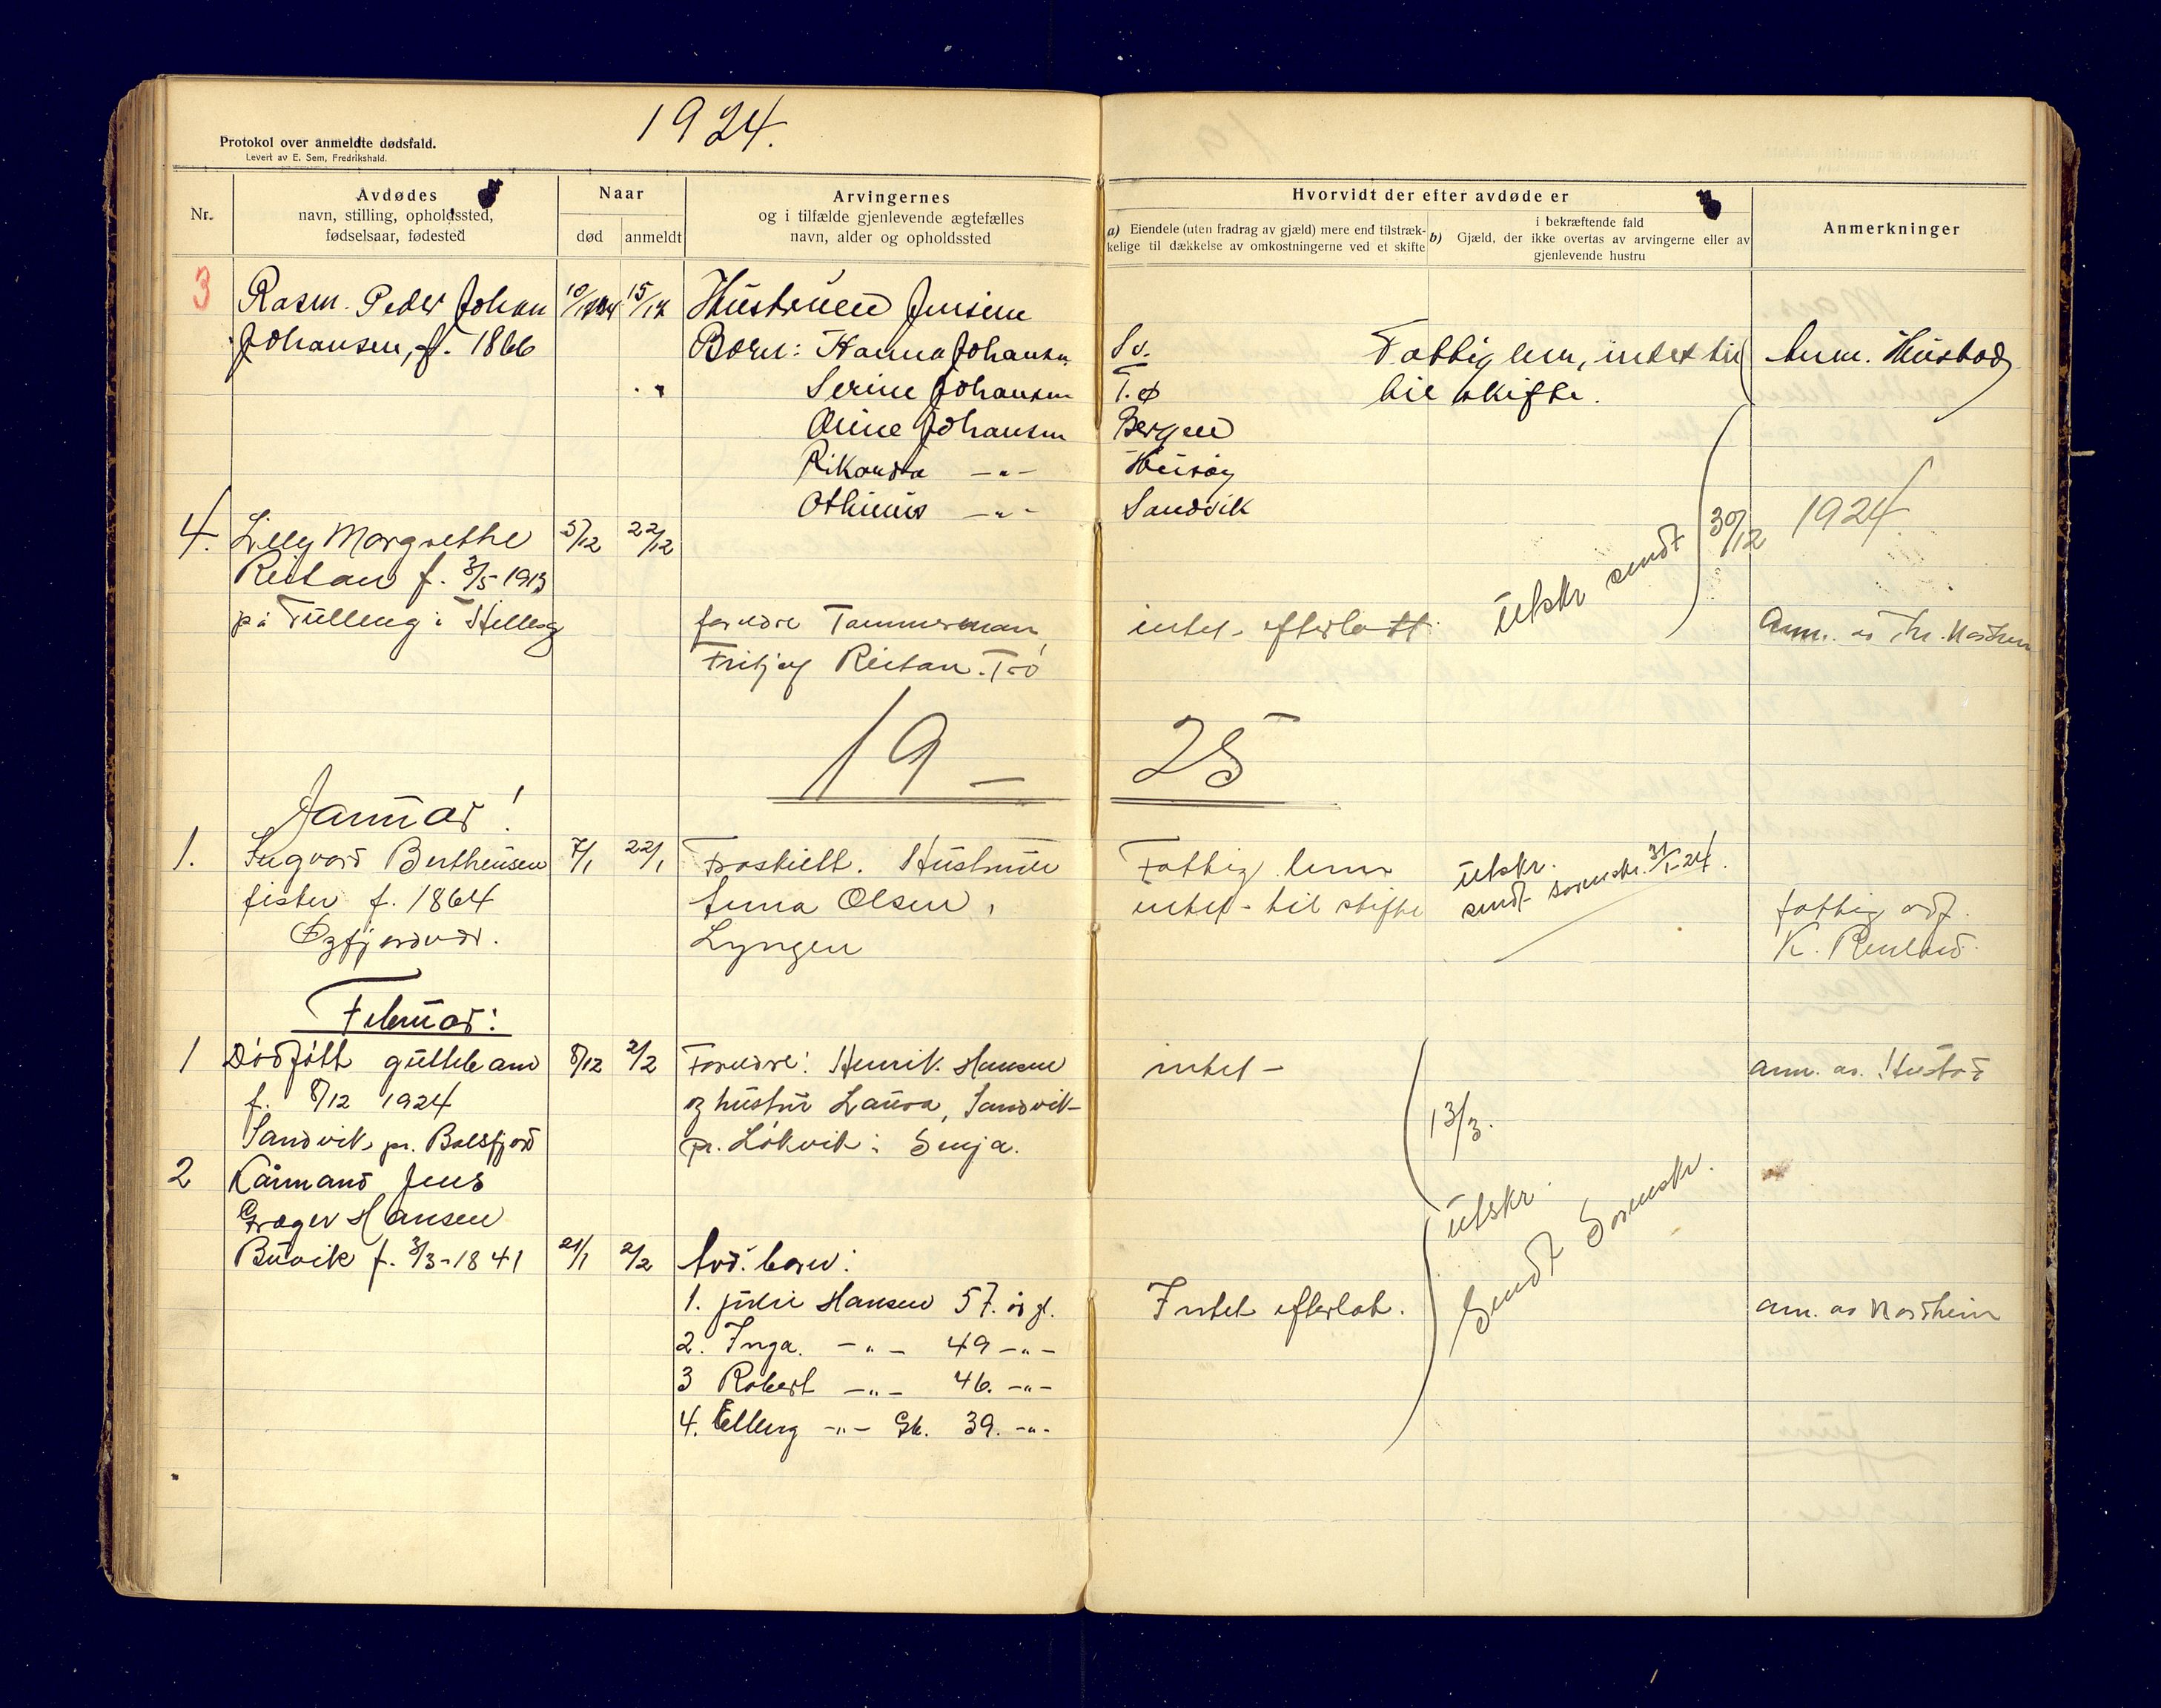 1924.
Protokol over anmeldte dødsfald.
Levert av E. Sem, Fredrikshald.
Nr.
Avdødes
navn, stilling, opholdssted,
fødselsaar, fødested
Naar
død
anmeldt
Arvingernes
og i tilfælde gjenlevende ægtefælles
navn, alder og opholdssted
Hvorvidt der efter avdøde er
a) Eiendele (uten fradrag av gjæld) mere end tilstræk-
kelige til dækkelse av omkostningerne ved et skifte
i bekræftende fald
b) Gjæld, der ikke overtas av arvingerne eller av
gjenlevende hustru
Anmerkninger
3 Rasm. Peder Johan
Johansen, f. 1866
15/12
Hustruen Jensine
Børn: Hanna Johansen
Serine Johansen
Johansen
Rikarda -"-
Othinius -"-
Sv.
T.ø
Bergen
Husøy
Sandvik
Fattiglem, intet til
til skifte.
Anm. Hustad
4. Lilly Margrethe
Reitan f. 3/5 1913
på Tulleng i
5/12 22/12
foreldre Tømmermann
Reitan. T-ø
intet efterlatt.
Utskr sendt 30/12 1924
Anm. av
19 - 25
Januar!
1. Ingvard Bertheusen
fisker f. 1864
7/1 22/1
Fraskilt. Hustruen
Anna Olsen,
Lyngen
Fattig lem
intet til skifte
utskr.
sendt sorenskr. 31/1-24.
fattig
K.
Februar:
1 Dødfødt guttebarn
f. 8/12 1924
Sandvik, pr. Balsfjord
8/12 2/2
Foreldre: Henrik Hansen
og hustru Laura, Sandvik
pr. Løkvik i Senja.
intet -
13/3.
anm. av. Hustad
2 Kårmand Jens
Græger Hansen
Buvik f. 3/3-1841
21/1 2/2
Avd. barn:
1. Julie Hansen 57. år gl.
2. Inga. -"- 49 -"-
3 Robert -"- 46. -"-
4. Elling -"- Gb. 39. -"-
Intet efterlat.
utskr.
Sendt Sorenskr.
am. av Nordheim